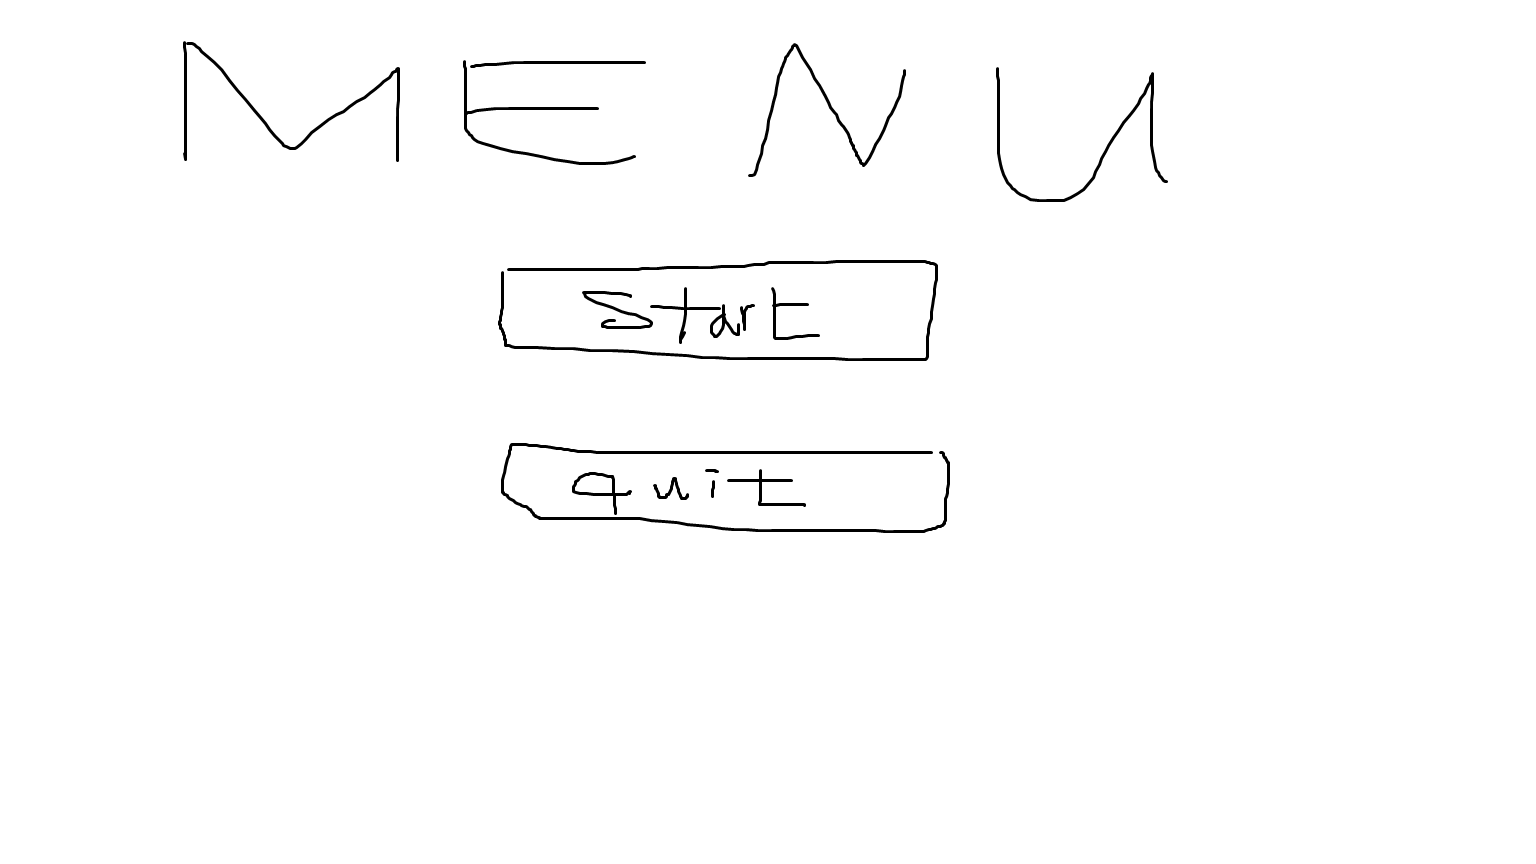 MENU
Start
quit